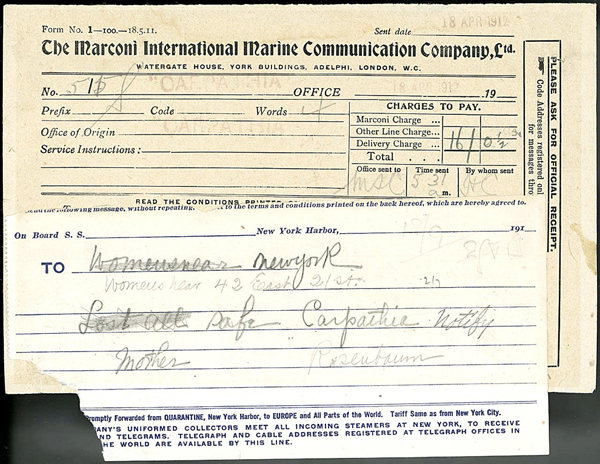 Form No. 1—100.—18.5.11.
Sent date 18 APR 1912
The Marconi International Marine Communication Company, Ltd.
WATERGATE HOUSE, YORK BUILDINGS, ADELPHI, LONDON, W.C.
"CARPATHIA"
No. OFFICE 18 APR 1912 19
Prefix Code Words
CARPATHIA
CHARGES TO PAY.
Marconi Charge ...
Office of Origin
Other Line Charge...
Service Instructions:
Delivery Charge ...
Total
Office sent to Time sent By whom sent
MSC 5 31 a m. HC
READ THE CONDITIONS PRINTED
the following message, without repeating, to the terms and conditions printed on the back hereof, which are hereby agreed to.
PLEASE ASK FOR OFFICIAL RECEIPT.
Code Addresses registered
for messages
On Board S. S. New York Harbor, 191
TO Womenswear Newyork
Womens wear 42 East 21 st.
Lost all safe Carpathia Notify
Mother Rosenbaum
Promptly Forwarded from QUARANTINE, New York Harbor, to EUROPE and All Parts of the World. Tariff Same as from New York City.
UNIFORMED COLLECTORS MEET ALL INCOMING STEAMERS AT NEW YORK, TO RECEIVE
TELEGRAMS. TELEGRAPH AND CABLE ADDRESSES REGISTERED AT TELEGRAPH OFFICES IN
THE WORLD ARE AVAILABLE BY THIS LINE.